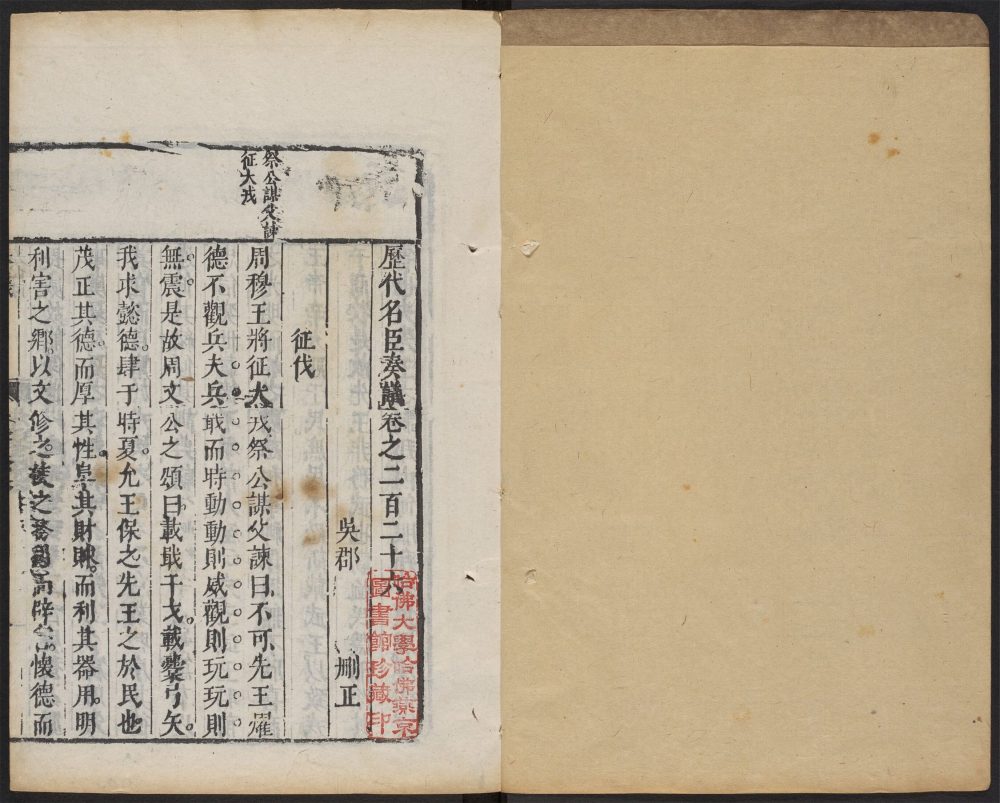 歷代名臣奏議卷之二百二十六
吳郡 刪正
征伐
祭公謀父諫
征犬戎
周穆王將征犬戎祭公謀父諫曰不可先王耀
德不觀兵夫兵戢而時動動則威觀則玩玩則
無震是故周文公之頌曰載戢干戈載櫜弓矢
我求懿德肆于時夏允王保之先王之於民也
茂正其德而厚其性阜其財賕而利其器用明
利害之鄉以文修之使之務利而辟害懷德而
哈佛大學哈佛燕京
圖書館珍藏印